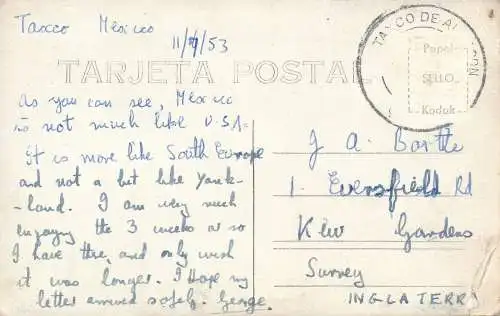 Taxco Mexico
11/9/53
TARJETA POSTAL
TAXCO DE AL
CON
Papel
SELLO.
Kodak
As you can see, Mexico
is not much like U.S.A.
It is more like South Europe
and not a bit like Yank-
land. I am very much
enjoying the 3 weeks or so
I have there, and only wish
it was longer. I Hope my
letter arrived safely. George.
J A. Bartle
1. Eversfield Rd
Kew Gardens
Surrey
INGLATERRA